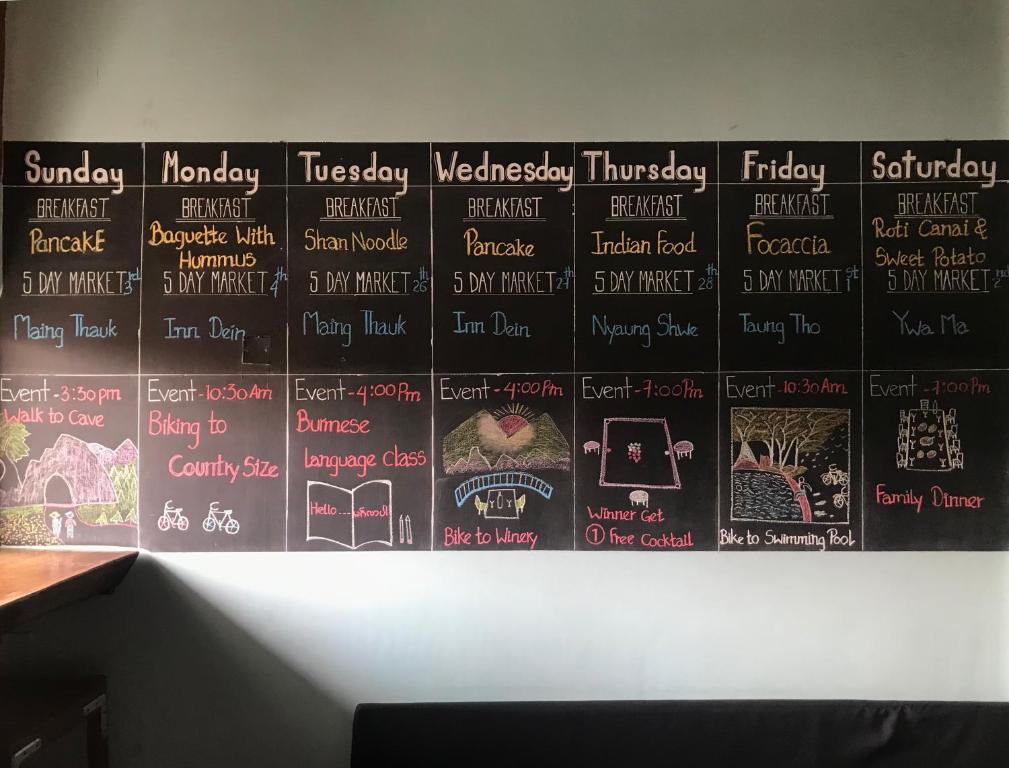 Sunday
BREAKFAST
PancakE
5 DAY MARKET 3rd
Maing Thauk
Event - 3:30 pm
Walk to Cave
Monday
BREAKFAST
Baguette With
Hummus
5 DAY MARKET 4th
Inn Dein
Event - 10:30 Am
Biking to
Country Size
Tuesday
BREAKFAST
Shan Noodle
5 DAY MARKET 26th
Maing Thauk
Event - 4:00 Pm
Burmese
Language Class
Hello ---
Wednesday
BREAKFAST
Pancake
5 DAY MARKET 27th
Inn Dein
Event - 4:00 Pm
Bike to Winery
Thursday
BREAKFAST
Indian Food
5 DAY MARKET 28th
Nyaung Shwe
Event - 7:00 Pm
Winner Get
1 Free Cocktail
Friday
BREAKFAST
Focaccia
5 DAY MARKET 1st
Taung Tho
Event - 10:30 Am
Bike to Swimming Pool
Saturday
BREAKFAST
Roti Canai &
Sweet Potato
5 DAY MARKET 2nd
Ywa Ma
Event - 7:00 Pm
Family Dinner